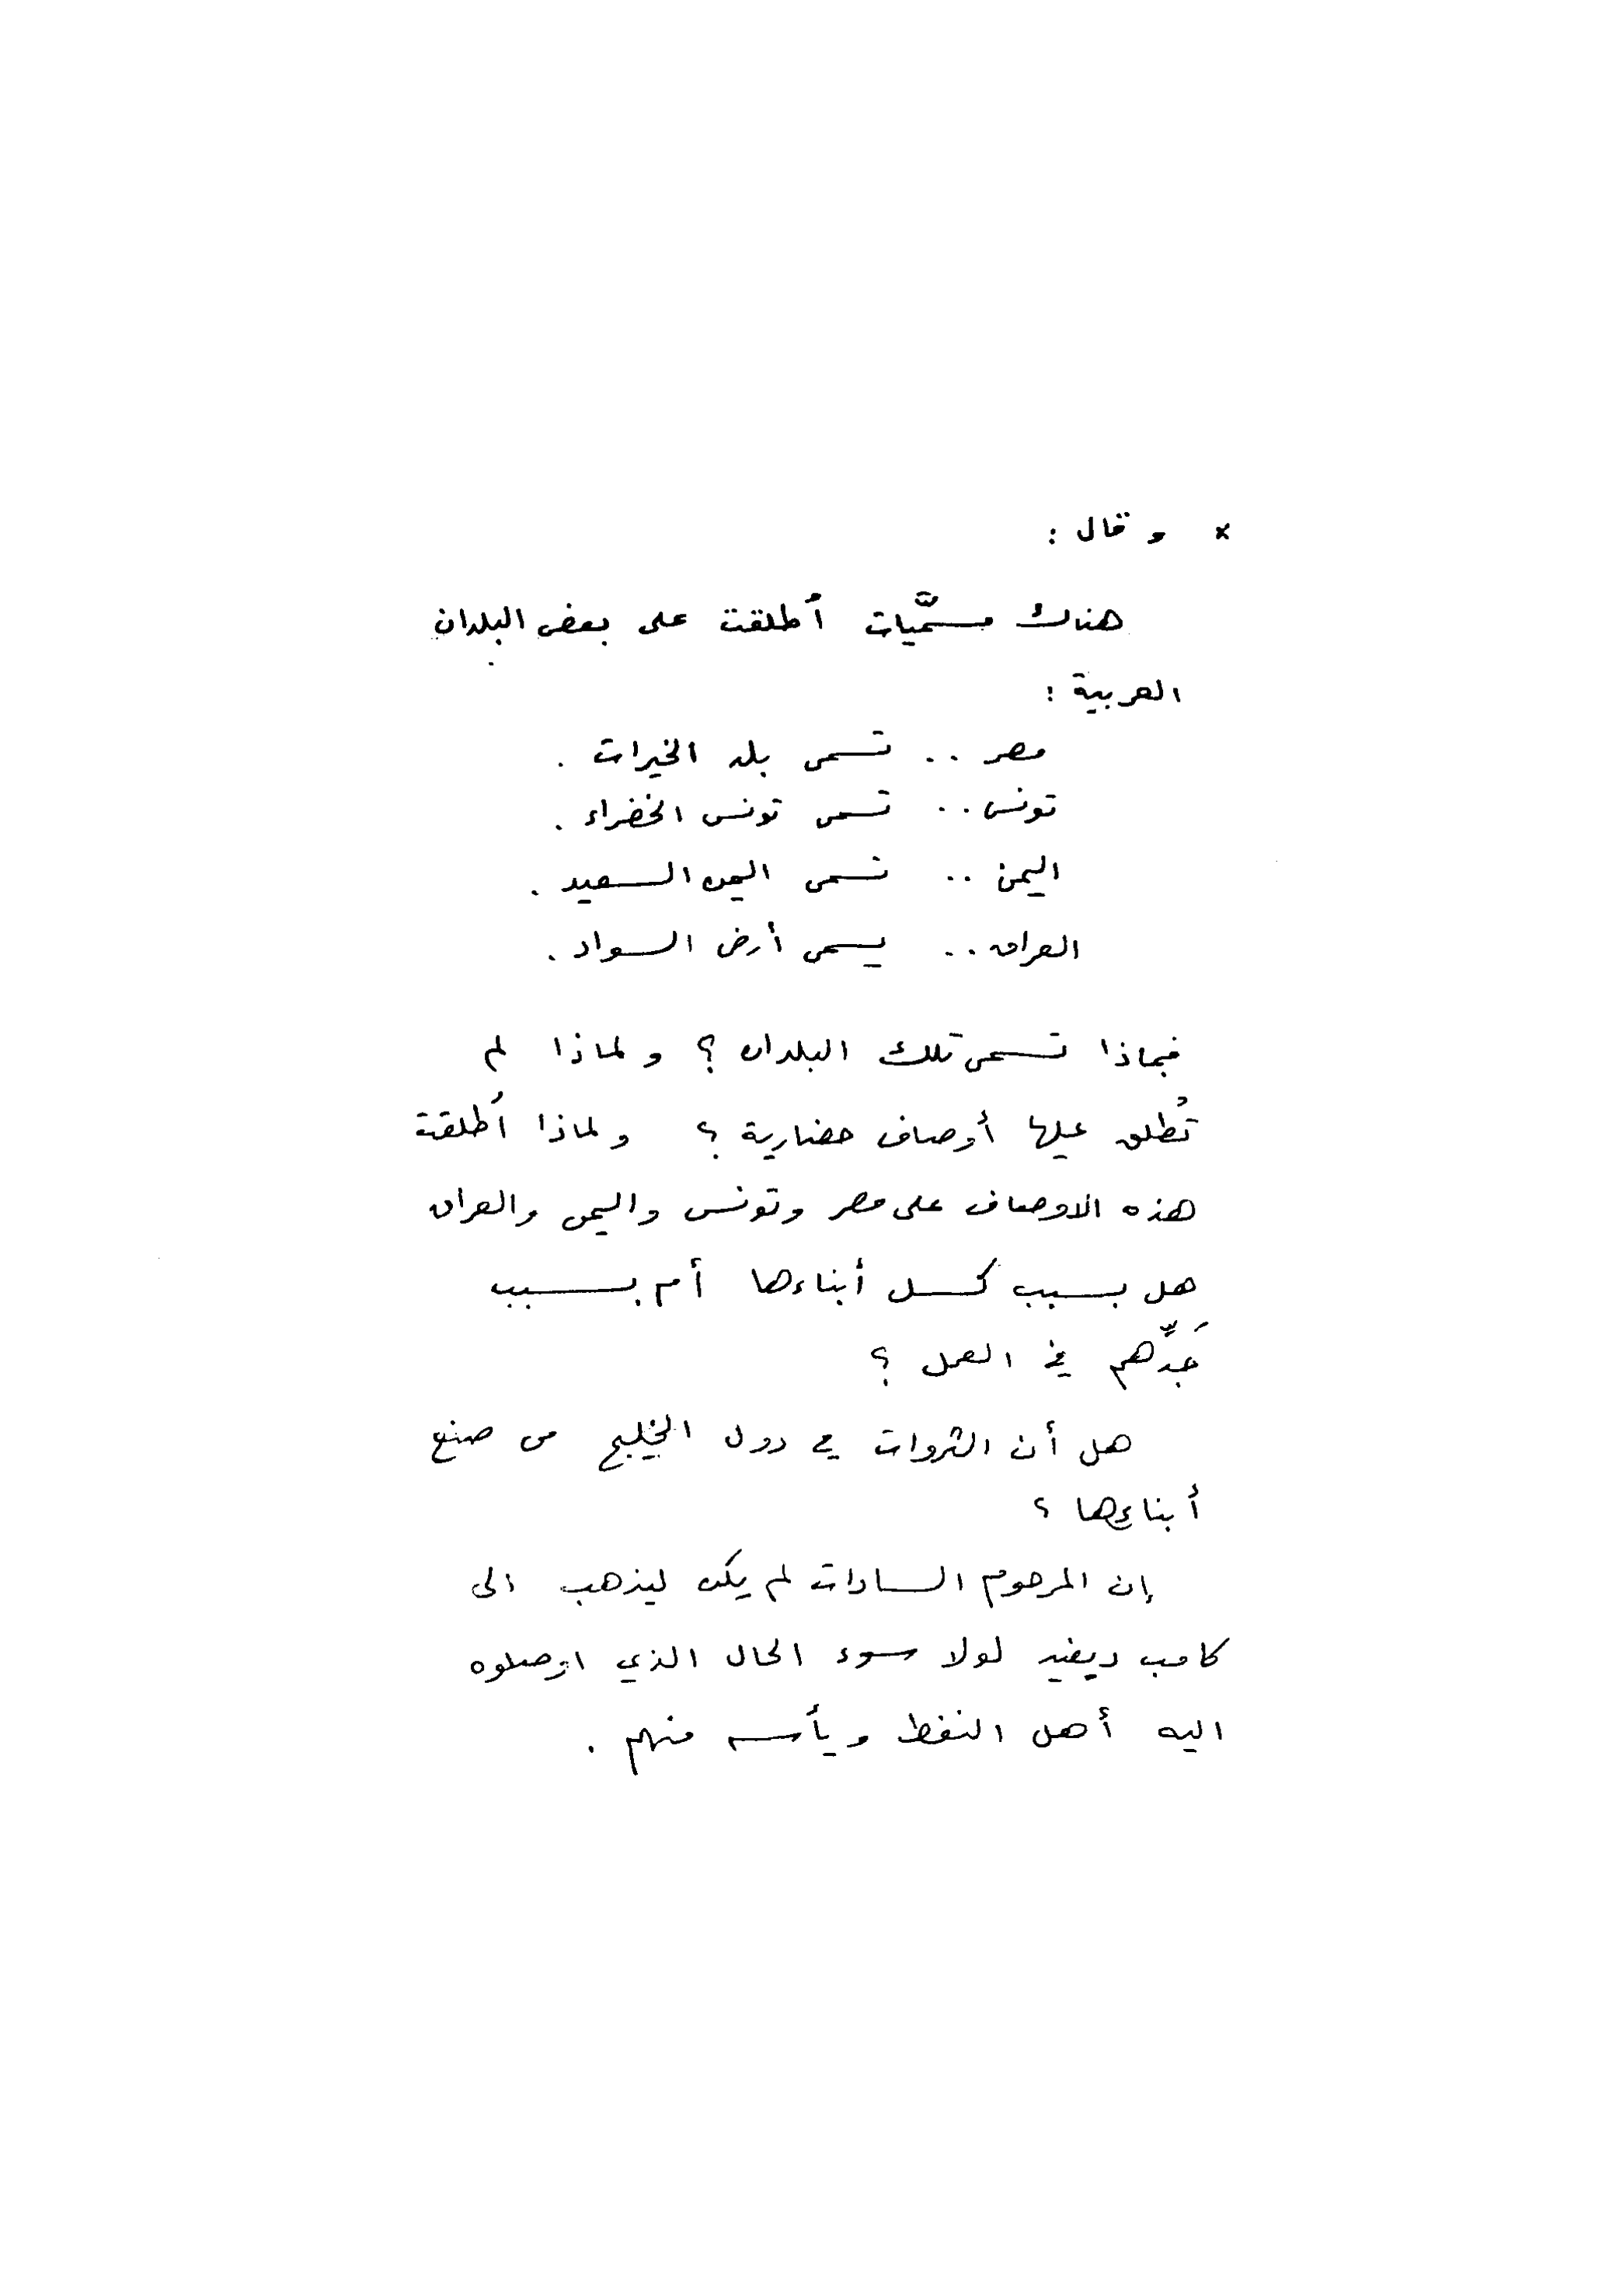 × وقال :
هناك مسمَّيات أُطلقت على بعض البلدان
العربية :
مصر .. تسمى بلد الخيرات .
تونس .. تسمى تونس الخضراء .
اليمن .. تسمى اليمن السعيد .
العراق .. يسمى أرض السواد .
فبماذا تسمى تلك البلدان ؟ ولماذا لم
تُطلق عليها أوصاف حضارية ؟ ولماذا أُطلقت
هذه الاوصاف على مصر وتونس واليمن والعراق
هل بسبب كسل أبناءها أم بسبب
جَدِّهم في العمل ؟
هل أن الثروات في دول الخليج من صنع
أبناءها ؟
إن المرحوم السادات لم يكن ليذهب الى
كامب ديفيد لولا سوء الحال الذي اوصلوه
اليه أهل النفط ويأسه منهم .